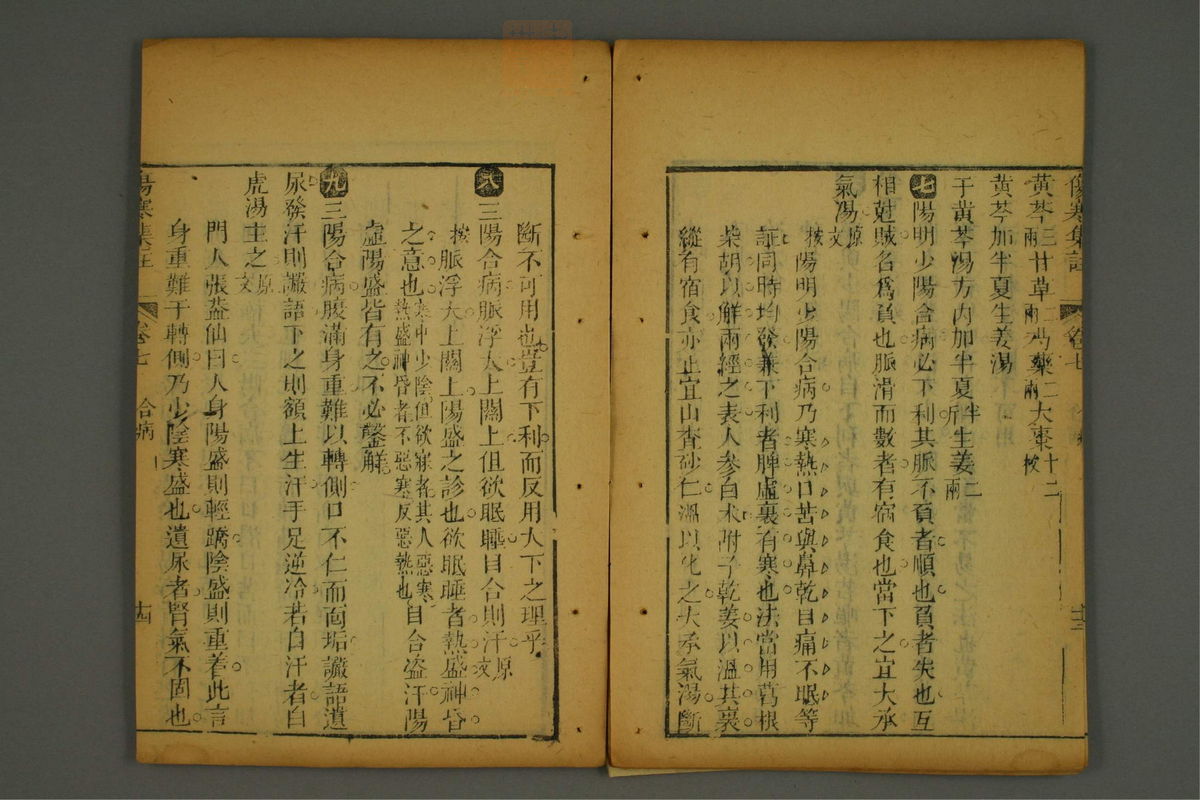 傷寒集註 卷七
黃芩三兩甘草二兩芍藥二兩大棗十二枚
黃芩加半夏生姜湯
于黃芩湯方內加半夏半斤生姜二兩
七陽明少陽合病必下利其脈不負者順也負者失也互
相尅賊名爲負也脈滑而數者有宿食也當下之宜大承
氣湯原文
按陽明少陽合病乃寒熱口苦與鼻乾目痛不眠等
証同時均發兼下利者脾虛裏有寒也法當用葛根
柴胡以解兩經之表人參白朮附子乾姜以溫其裏
縱有宿食亦止宜山查砂仁溫以化之大承氣湯斷
斷不可用也豈有下利而反用大下之理乎
八三陽合病脈浮大上關上但欲眠睡目合則汗原文
按脈浮大上關上陽盛之診也欲眠睡者熱盛神昏
之意也寒中少陰但欲寐者其人惡寒熱盛神昏者不惡寒反惡熱也目合盜汗陽
虛陽盛皆有之不必鑿解
九三陽合病腹滿身重難以轉側口不仁而面垢讝語遺
尿發汗則讝語下之則額上生汗手足逆冷若自汗者白
虎湯主之原文
門人張蓋仙曰人身陽盛則輕蹻陰盛則重着此言
身重難于轉側乃少陰寒盛也遺尿者腎氣不固也
傷寒集註 卷七 合病 十四